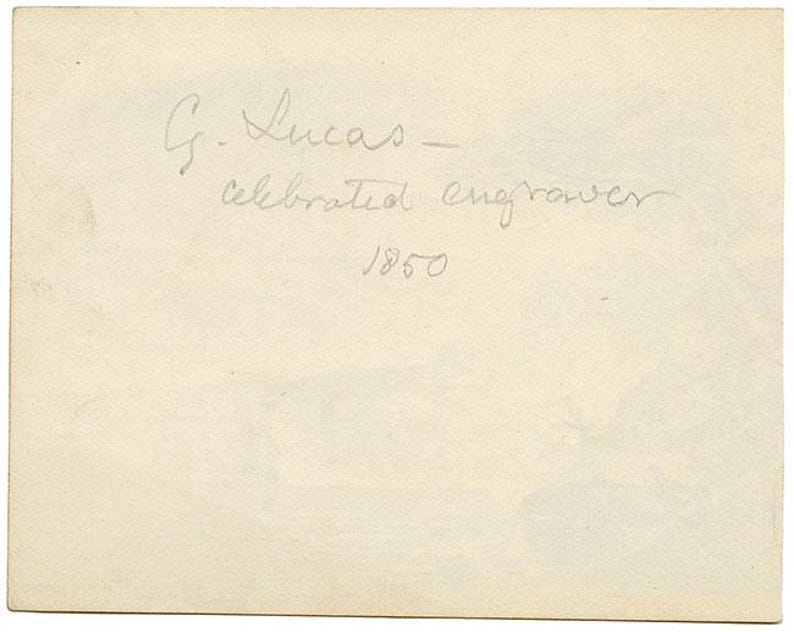 G. Lucas –
celebrated engraver
1850